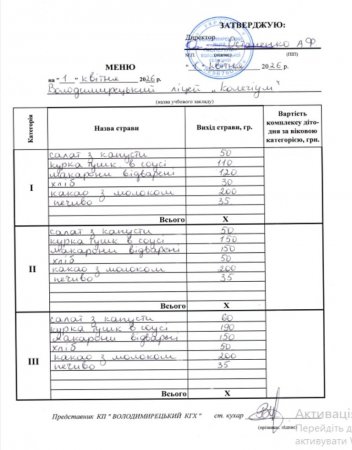 ЗАТВЕРДЖУЮ:
Директор Остапенко А.Ф
(підпис) (ПІП)
МЕНЮ
" 1 " квітня 2026 р.
на " 1 " квітня 2026 р.
Володимирецький ліцей „Колегіум"
(назва учбового закладу)
Категорія
Назва страви
Вихід страви, гр.
Вартість комплексу діто-дня за віковою категорією, грн.
I
салат з капусти 50
курка тушк в соусі 110
макарони відварені 120
хліб 30
какао з молоком 200
печиво 35
Всього X
II
салат з капусти 50
курка тушк в соусі 150
макарони відварені 150
хліб 50
какао з молоком 200
печиво 35
Всього X
III
салат з капусти 60
курка тушк в соусі 190
макарони відварені 150
хліб 50
какао з молоком 200
печиво 35
Всього X
Представник КП " ВОЛОДИМИРЕЦЬКИЙ КГХ " ст. кухар
(прізвище, підпис)
Активаці
Перейдіть д
активувати